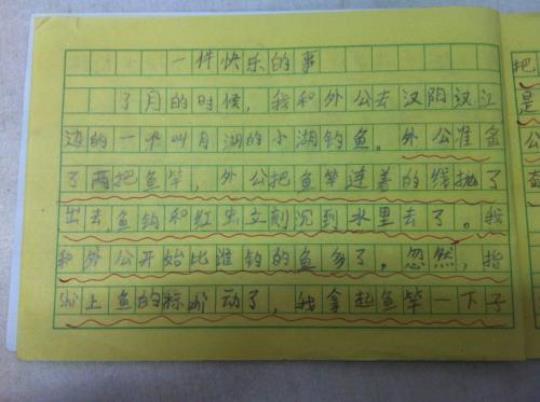 一件快乐的事
了月的时候，我和外公去汉阳汉江
边的一个叫月湖的小湖钓鱼。外公准备
了两把鱼竿，外公把鱼竿连着的线抛了
出去，鱼钩和红虫立刻沉到水里去了。我
和外公开始比谁钓的鱼多了。忽然，指
上鱼的标动了，我拿起鱼竿一下子
把
是
公